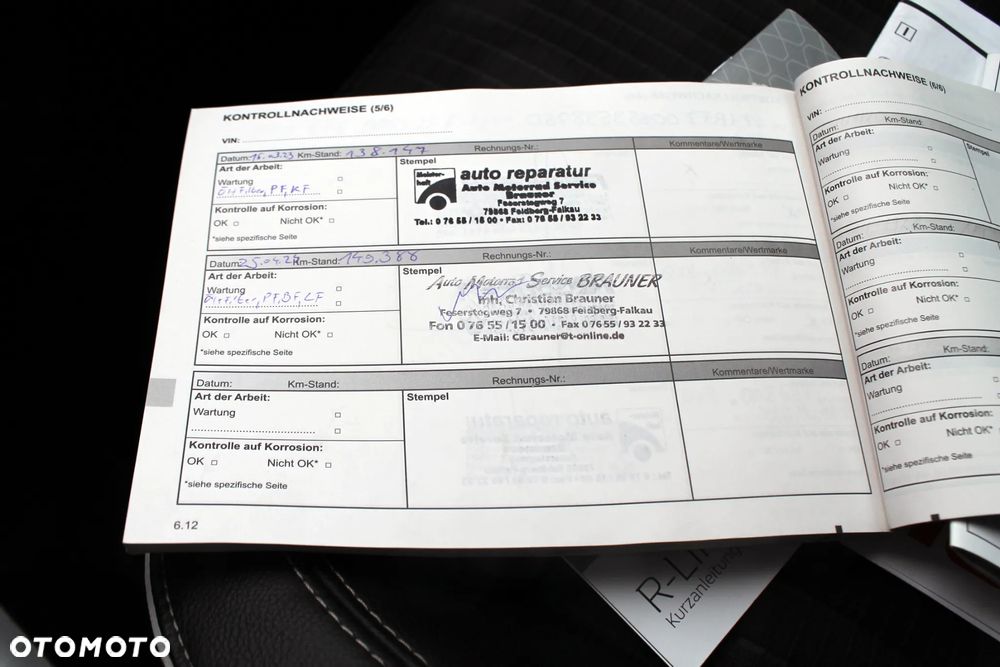 KONTROLLNACHWEISE (5/6)
VIN:
Datum: 15.03.23 Km-Stand: 138.147 Rechnungs-Nr.: Kommentare/Wertmarke
Art der Arbeit:
Wartung
PF, KF
Kontrolle auf Korrosion:
OK Nicht OK*
*siehe spezifische Seite
Stempel
Meister-
haft
auto reparatur
Auto Motorrad Service
Brauner
Feserstogweg 7
79868 Feldberg-Falkau
Tel.: 0 76 55 / 15 00 • Fax: 0 76 55 / 93 22 33
Datum: Km-Stand: 149.388 Rechnungs-Nr.: Kommentare/Wertmarke
Art der Arbeit:
Wartung
PF, BF, LF
Kontrolle auf Korrosion:
OK Nicht OK*
*siehe spezifische Seite
Stempel
Auto Motorrad Service BRAUNER
Inh. Christian Brauner
Feserstogweg 7 • 79868 Feldberg-Falkau
Fon 0 76 55 / 15 00 • Fax 0 76 55 / 93 22 33
E-Mail: CBrauner@t-online.de
Datum: Km-Stand: Rechnungs-Nr.: Kommentare/Wertmarke
Art der Arbeit:
Wartung
Kontrolle auf Korrosion:
OK Nicht OK*
*siehe spezifische Seite
Stempel
6.12
KONTROLLNACHWEISE (6/6)
VIN:
Datum: Km-Stand:
Art der Arbeit:
Wartung
Kontrolle auf Korrosion:
OK Nicht OK*
*siehe spezifische Seite
Datum: Km-Stand:
Art der Arbeit:
Wartung
Kontrolle auf Korrosion:
OK Nicht OK*
*siehe spezifische Seite
Datum: Km-Stand:
Art der Arbeit:
Wartung
Kontrolle auf Korrosion:
OK Nicht OK*
*siehe spezifische Seite
Kurzanleitung
OTOMOTO